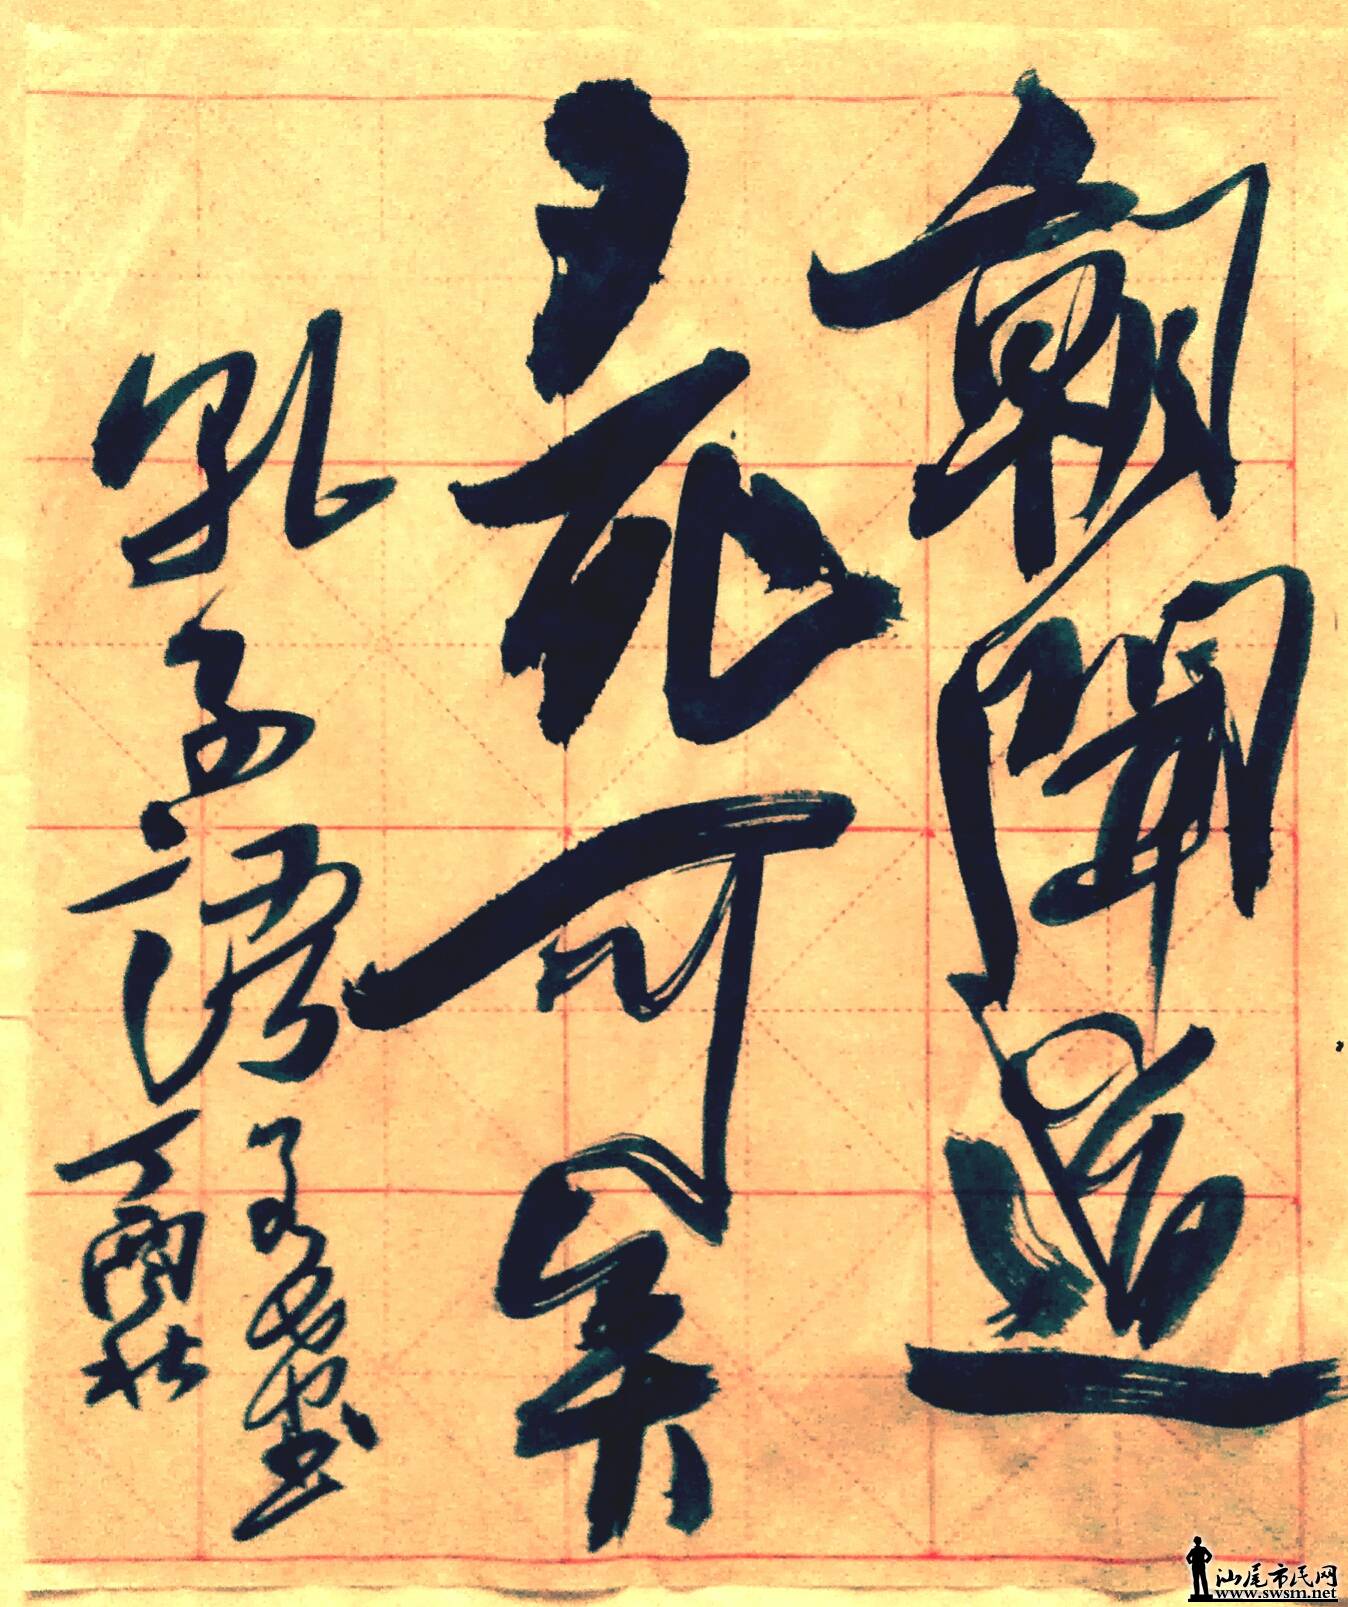 朝聞道
夕死可矣
孔子語
書
丁酉秋
汕尾市民网
www.swsm.net